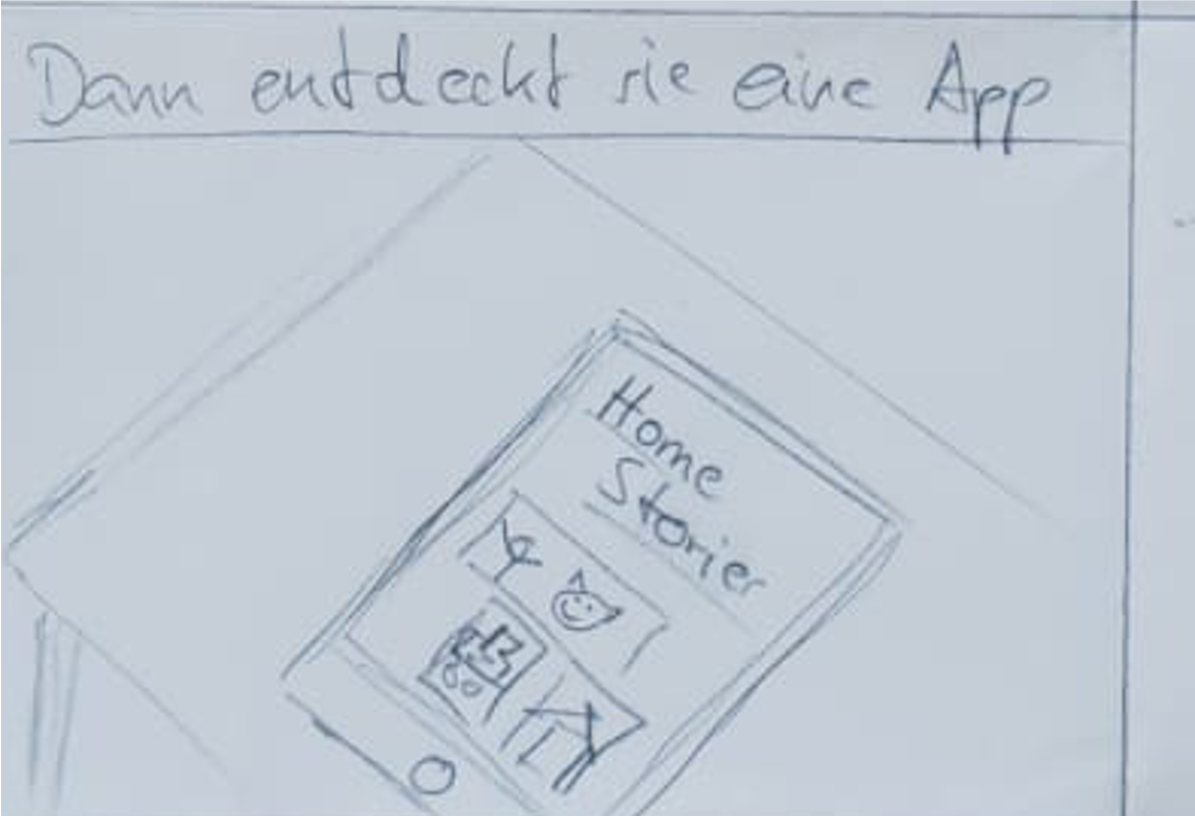 Dann entdeckt sie eine App
Home
Stories